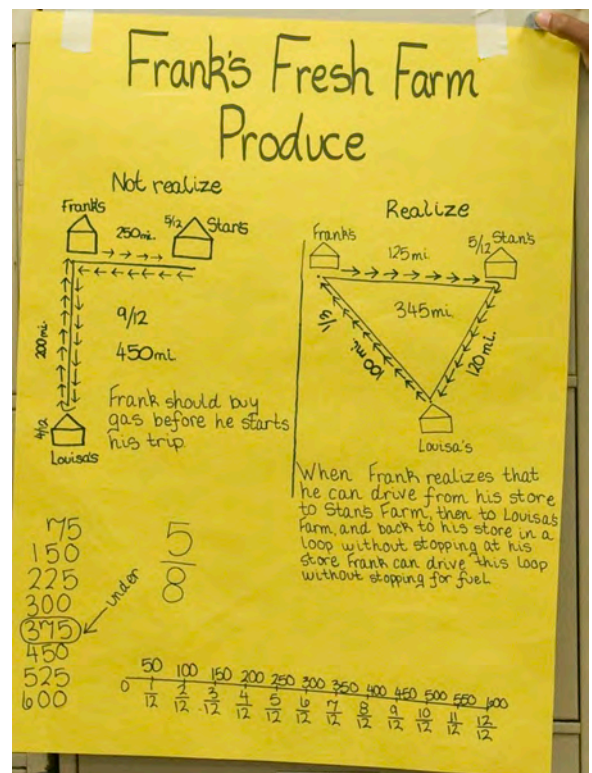 Frank's Fresh Farm
Produce
Not realize
Frank's
250mi.
5/12
Stan's
200mi.
9/12
450mi.
Frank should buy
gas before he starts
his trip.
4/12
Louisa's
Realize
Frank's
125mi.
5/12
Stan's
345mi.
100mi.
120mi.
Louisa's
When Frank realizes that
he can drive from his store
to Stan's Farm, then to Louisa's
Farm, and back to his store in a
loop without stopping at his
store Frank can drive this loop
without stopping for fuel.
75
150
225
300
375
under
450
525
600
5
8
0 50 100 150 200 250 300 350 400 450 500 550 600
1 2 3 4 5 6 7 8 9 10 11 12
12 12 12 12 12 12 12 12 12 12 12 12